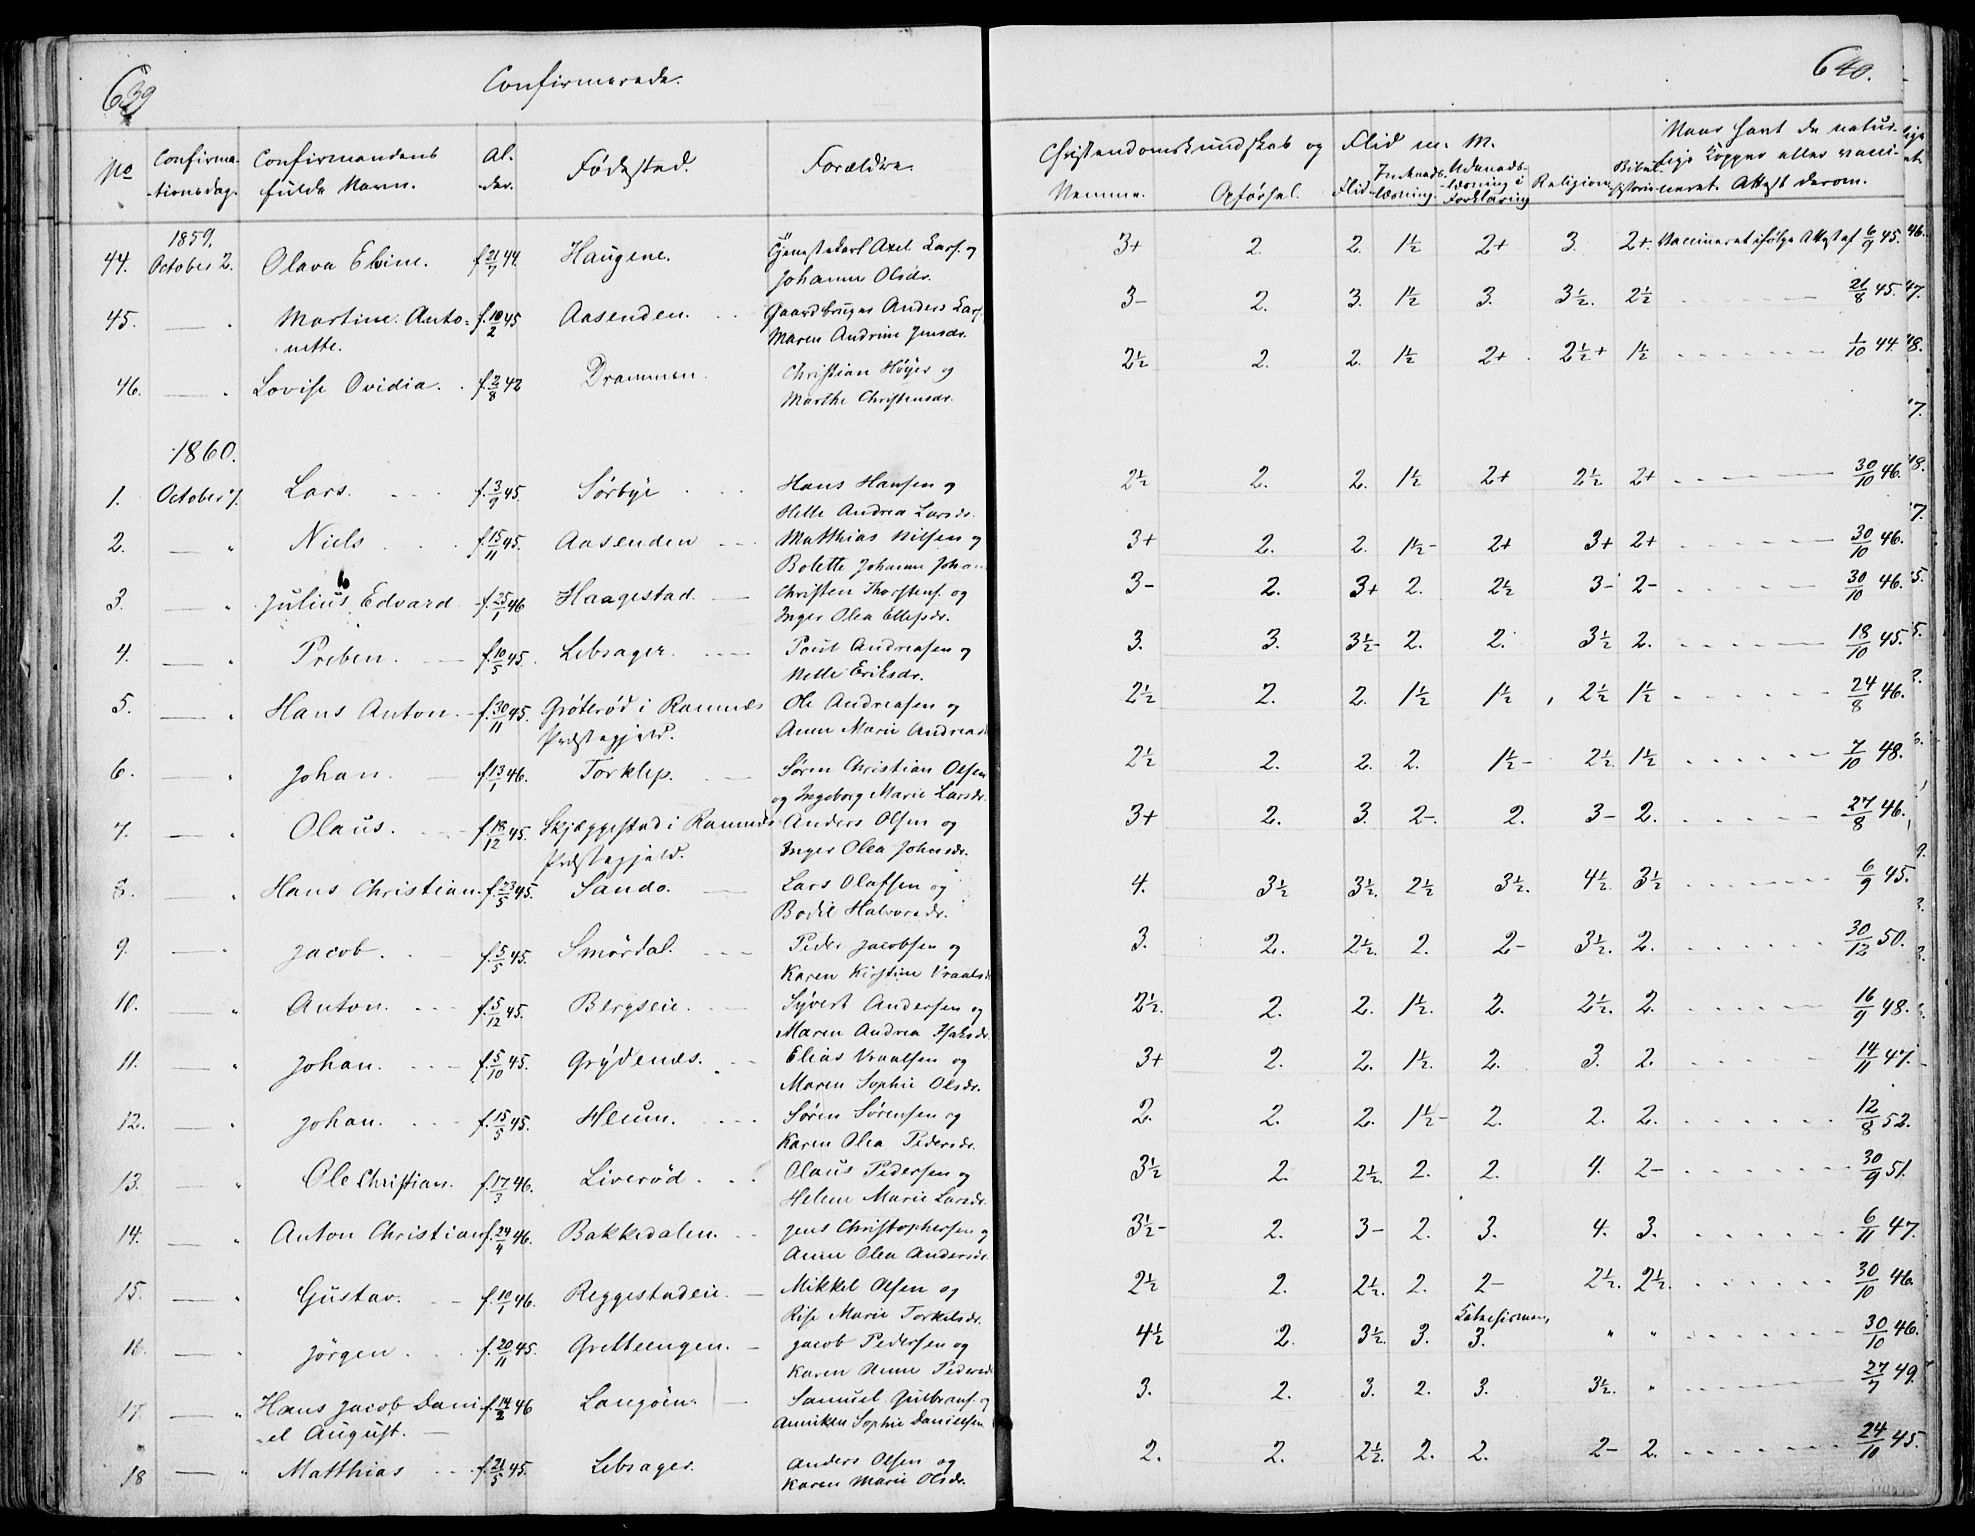 639
Confirmerede.
640.
No
Confirma-
-tionsdag.
Confirmandens
fulde Navn.
Al-
-der.
Fødested.
Forældre.
Christendomskundskab og Flid m. M.
Nemme.
Opførsel.
Flid
Indenads-
læsning.
Udenads-
-læsning i
Forklaring
Religion
Bibel-
historie
Naar havt de natur-
lige Kopper eller vacci-
-neret. Attest derom.
1859.
44. October 2. Olava Elvine. f. 21/7 44. Haugene. Axel Lars. og
Johanne Olsdr.
3+ 2. 2. 1½ 2+ 3. 2+. Vaccineret ifølge Attest af 6/9 45.
45. — " Martine Anto- f. 10/2 45 Aasenden. Gaardbruger Anders Lars.
-nette. Maren Andrine Jensdr.
3- 2. 3. 1½ 3. 3½. 2½ 21/8 45.
46. — " Lovise Ovidia. f. 2/8 42 Drammen. Christian Høyer og
Marthe Christensdr.
2½ 2. 2. 1½ 2+ 2½+ 1½ 1/10 44.
1860.
1. October 7. Lars. f. 3/9 45. Sørbye Hans Hansen og
Helle Andrea Larsdr.
2½ 2. 2. 1½ 2+ 2½ 2+ 30/10 46.
2. — " Niels f. 15/11 45. Aasenden Matthias Nilsen og
Bolette Johanne Johan
3+ 2. 2. 1½- 2+ 3+ 2+ 30/10 46.
3. — " Julius Edvard f. 25/1 46 Haagestad — Christen Thorstens. og
Inger Olea Ellefsdr.
3- 2. 3+ 2. 2½ 3- 2- 30/10 46.
4. — " Preben. f. 10/5 45. Lebsager. Poul Andreasen og
Nelle Eriksdr.
3. 3. 3½- 2. 2. 3½ 2. 18/10 45.
5. — " Hans Anton. f. 30/11 45. Grøterød i Ramnæs Ole Andreasen og
Præstegjeld. Anne Marie Andreasd
2½ 2. 2. 1½ 1½ 2½ 1½ 24/8 46.
6. — " Johan. f. 13/1 46. Torklep. Søren Christian Olsen
og Ingeborg Marie Larsdr.
2½ 2. 2. 2. 1½- 2½ 1½ 7/10 48.
7. — " Olaus. f. 18/12 45. Skjæggestad i Ramnæs Anders Olsen og
Præstegjeld. Inger Olea Johnsdr.
3+ 2. 3. 2-. 2. 3- 2. 27/8 46.
8. — " Hans Christian. f. 23/5 45. Sando. Lars Olafsen og
Bodil Halvorsdr.
4. 3½ 3½. 2½ 3½. 4½. 3½ 6/9 45.
9. — " Jacob. f. 5/5 45. Smørdal. Peder Jacobsen og
Karen Kirstine Vraalsd
3. 2. 2½. 2. 2- 3½. 2. 30/12 50.
10. — " Anton. f. 5/12 45. Bergseie. Syvert Andersen og
Maren Andrea Isaksdr.
2½. 2. 2. 1½. 2. 2½. 2. 16/9 48.
11. — " Johan. f. 5/10 45. Grydenæs. Elias Vraalsen og
Maren Sophie Olsdr.
3+ 2. 2. 1½. 2. 3. 2. 14/11 47.
12. — " Johan. f. 15/5 45. Heum. Søren Sørensen og
Karen Olea Pedersdr.
2. 2. 2. 1½- 2. 2. 2. 12/8 52.
13. — " Ole Christian. f. 17/3 46. Liverød. Olaus Pedersen og
Helene Marie Larsdr.
3½ 2. 2½. 2. 2. 4. 2- 30/9 51.
14. — " Anton Christian f. 24/4 46. Bakkedalen. Jens Christophersen og
Anne Olea Andersdr.
3½- 2. 3- 2. 3. 4. 3. 6/11 47.
15. — " Gustav. f. 10/1 46. Reggestadeie. Mikkel Olsen og
Rise Marie Torkelsdr.
2½ 2. 2½. 2. 2- 2½. 2½. 30/10 46.
16. — " Jørgen f. 20/11 45. Gretteengen. Jacob Pedersen og
Karen Anne Pedersd
4½ 2. 3½. 3. Katechismen, 3. " " 30/10 46.
17. — " Hans Jacob Dani- f. 14/2 46 Langøen. Samuel Gulbrans. og
-el August. Anniken Sophie Danielsen
3. 2. 3. 2. 3. 3½. " 27/7 49.
18 — " Matthias f. 21/5 45. Lebsager. Anders Olsen og
Karen Marie Olsdr.
2. 2. 2½. 2. 2. 2- 2. 24/10 45.